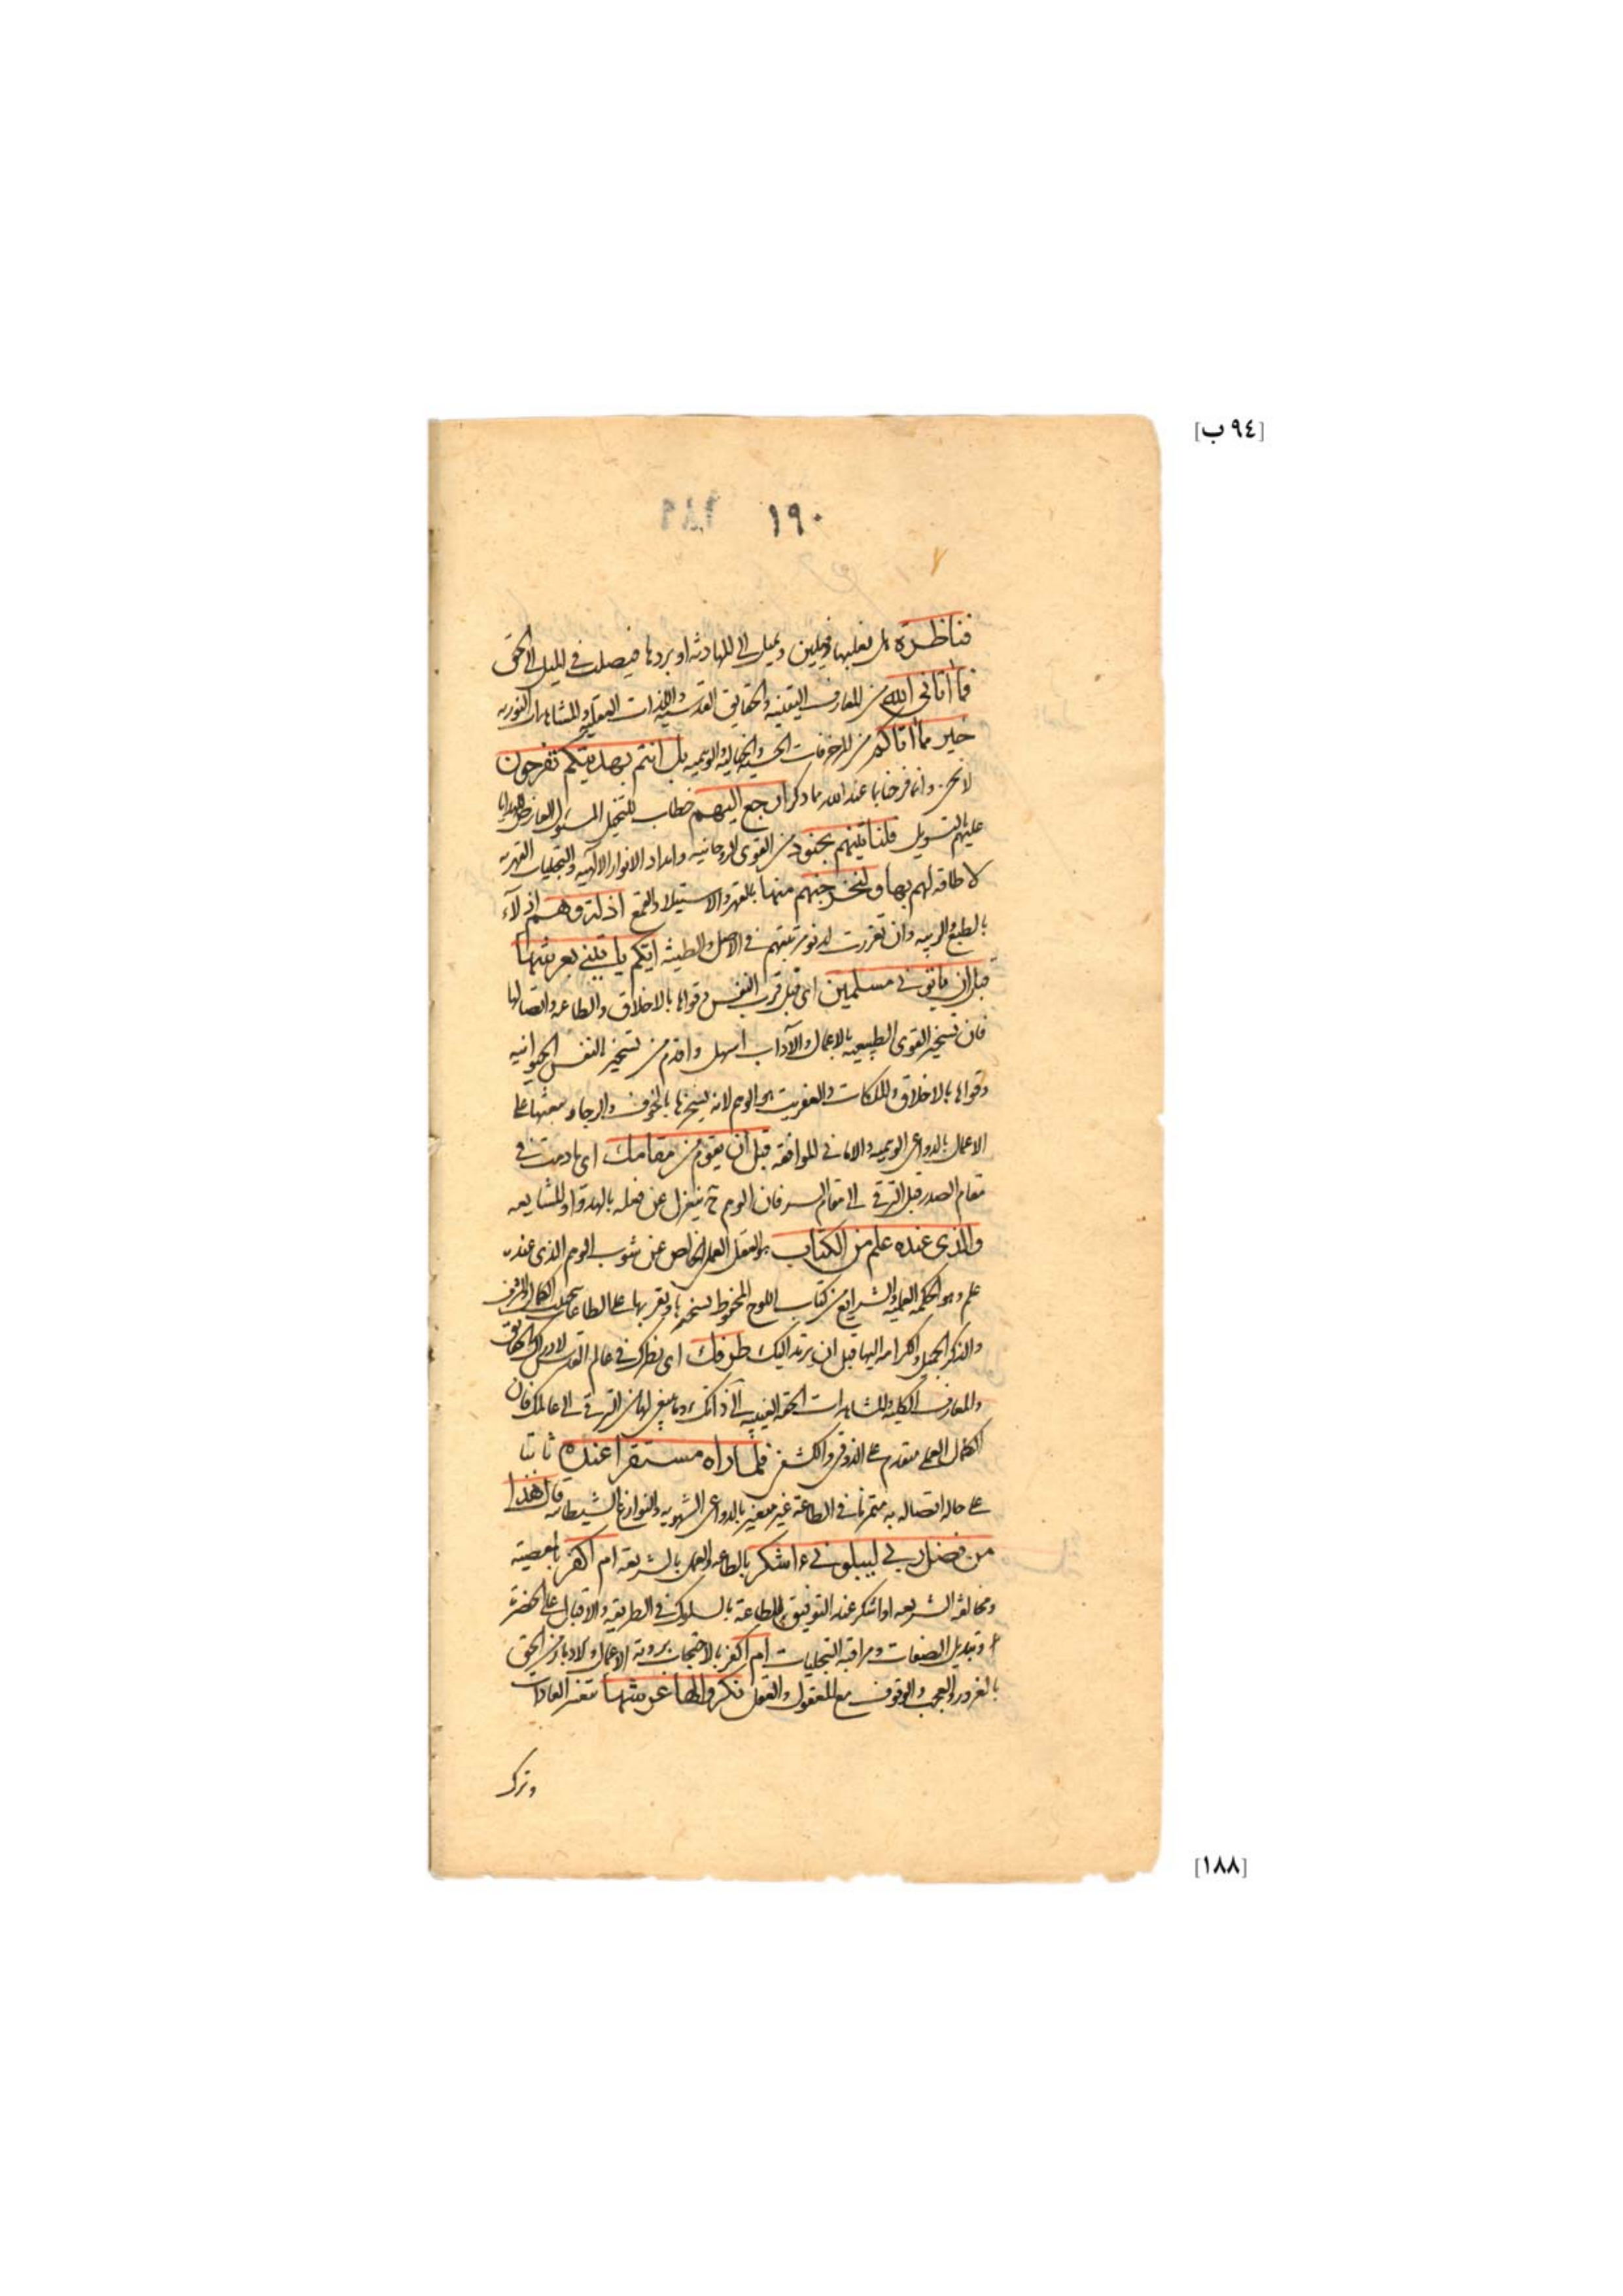 [٩٤ ب]
١٩٠
فناظرة هل نغلبها فيلين ويميل الى المهادثة او بردها فيصلب في الميل الى الحق
فما أتانى الله من المعارف اليقينية والحقايق القدسية واللذات العقلية والمشاهدات النورية
خير مما أتاكم من المزخرفات الحسية والخيالية والوهمية بل انتم بهديتكم تفرحون
لا نحن وانما فرحنا بما عند الله مما ذكر ارجع اليهم خطاب للمتخيل المسول العارض الهدايا
عليهم بالتسويل فلنأتينهم بجنود من القوى الروحانية وامداد الانوار الالهية والتجليات القهرية
لا طاقة لهم بها ولنخرجنهم منها بالقهر والاستيلاء والقمع اذلة وهم اذلآء
بالطبع والرتبة وان تعززت لدنو مرتبتهم في الاصل والطينة ايكم يأتينى بعرشها
قبل ان ياتونى مسلمين اى قبل قرب النفس وقواها بالاخلاق والطاعة واتصالها
فان تسخير القوى الطبيعية بالاعمال والآداب اسهل واقدم من تسخير النفس الحيوانية
وقواها بالاخلاق والملكات والعفريت هو الوهم لانه يسخرها بالخوف والرجاء ويبعثها على
الاعمال بالدواعى الوهمية والامانى الموافقة قبل أن تقوم من مقامك اى ما دمت في
مقام الصدر قبل الترقى الى مقام السر فان الوهم ح ينعزل عن فعله بالهدو او المشايعة
والذى عنده علم من الكتاب هو العقل العملى الخالص عن شوب الوهم الذى عنده
علم وهو الحكمة العملية والشرايع من كتاب اللوح المحفوظ يسخرها ويقربها على الطاعات بتحبيب الكمال والشرف
والذكر الجميل والكرامة اليها قبل ان يرتد اليك طرفك اى نظرك في عالم القدس لادراك الحقايق
والمعارف الكلية والمشاهدات الحقة الغيبية الى ذاتك وما ينبغى لها من الترقى الى عالمك فان
الكمال العملى متقدم على الذوقى والكشفى فلما رآه مستقرا عنده ثابتا
على حالة اتصاله به متمرنا في الطاعة غير متغير بالدواعى الشهوية والنوازغ الشيطانية قال هذا
من فضل ربى ليبلونى ءاشكر بالطاعة والعمل بالشريعة ام اكفر بالمعصية
ومخالفة الشريعة او اشكر عند التوفيق للطاعة بالسلوك في الطريقة والاقبال على الحضرة
وتبديل الصفات ومراقبة التجليات أم اكفر بالاحتجاب برؤية الاعمال والادبار عن الحق
بالغرور والعجب والوقوف مع المعقول والعقل نكروا لها عرشها بتغير العادات
وترك
[١٨٨]